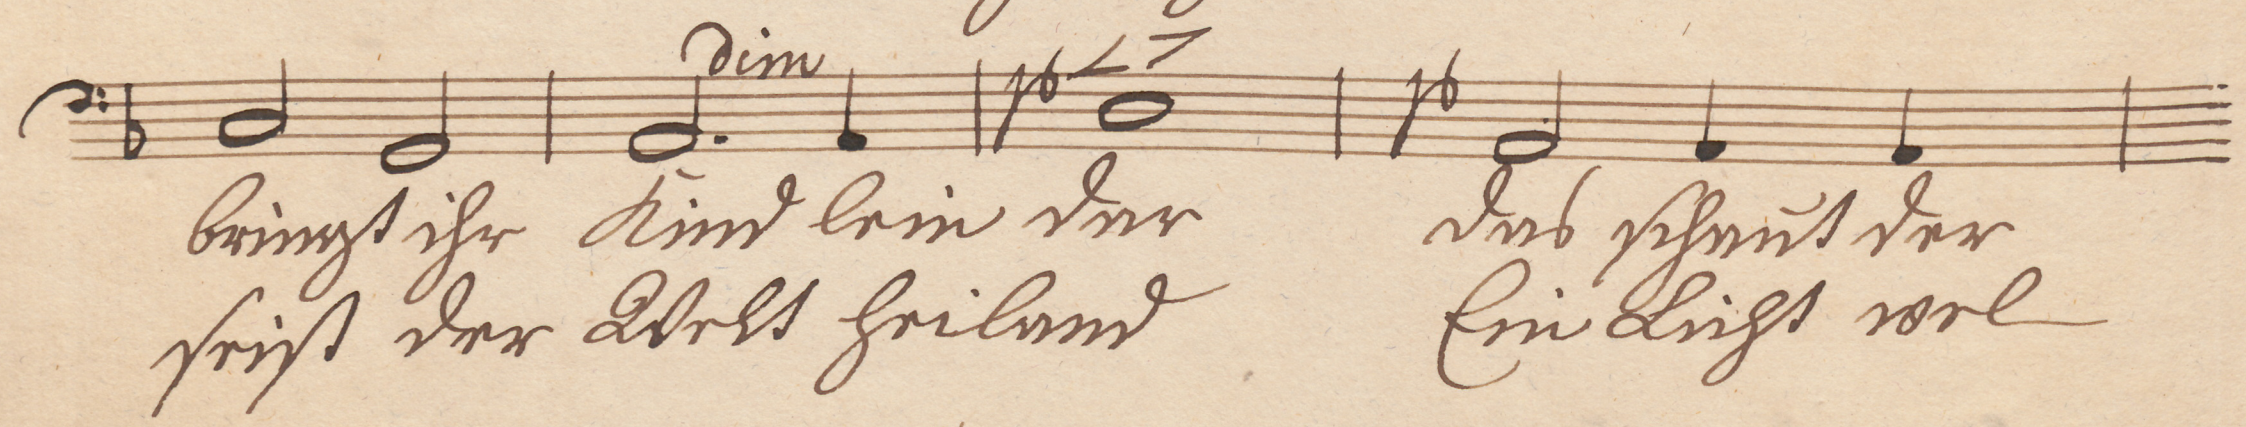 dim
p p
bringt ihr Kindlein dar das schaut der
heist der Welt Heiland Ein Licht wel